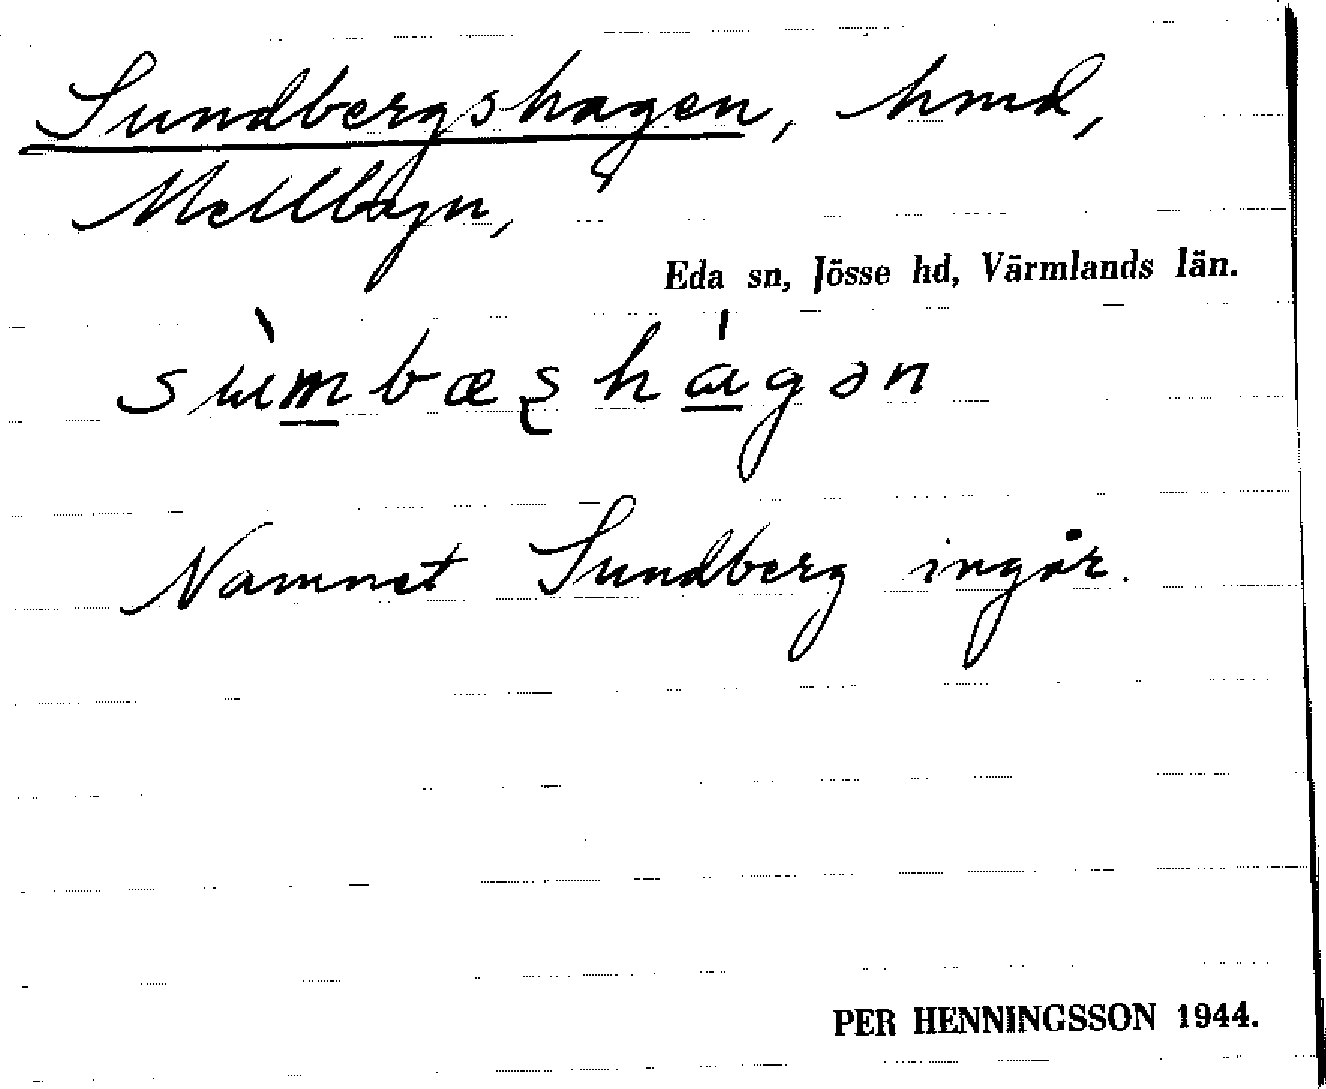 Sundbergshagen, hmd,
Mellbyn,
Eda sn, Jösse hd, Värmlands län.
sùmbæʂhágən
Namnet Sundberg ingår.
PER HENNINGSSON 1944.